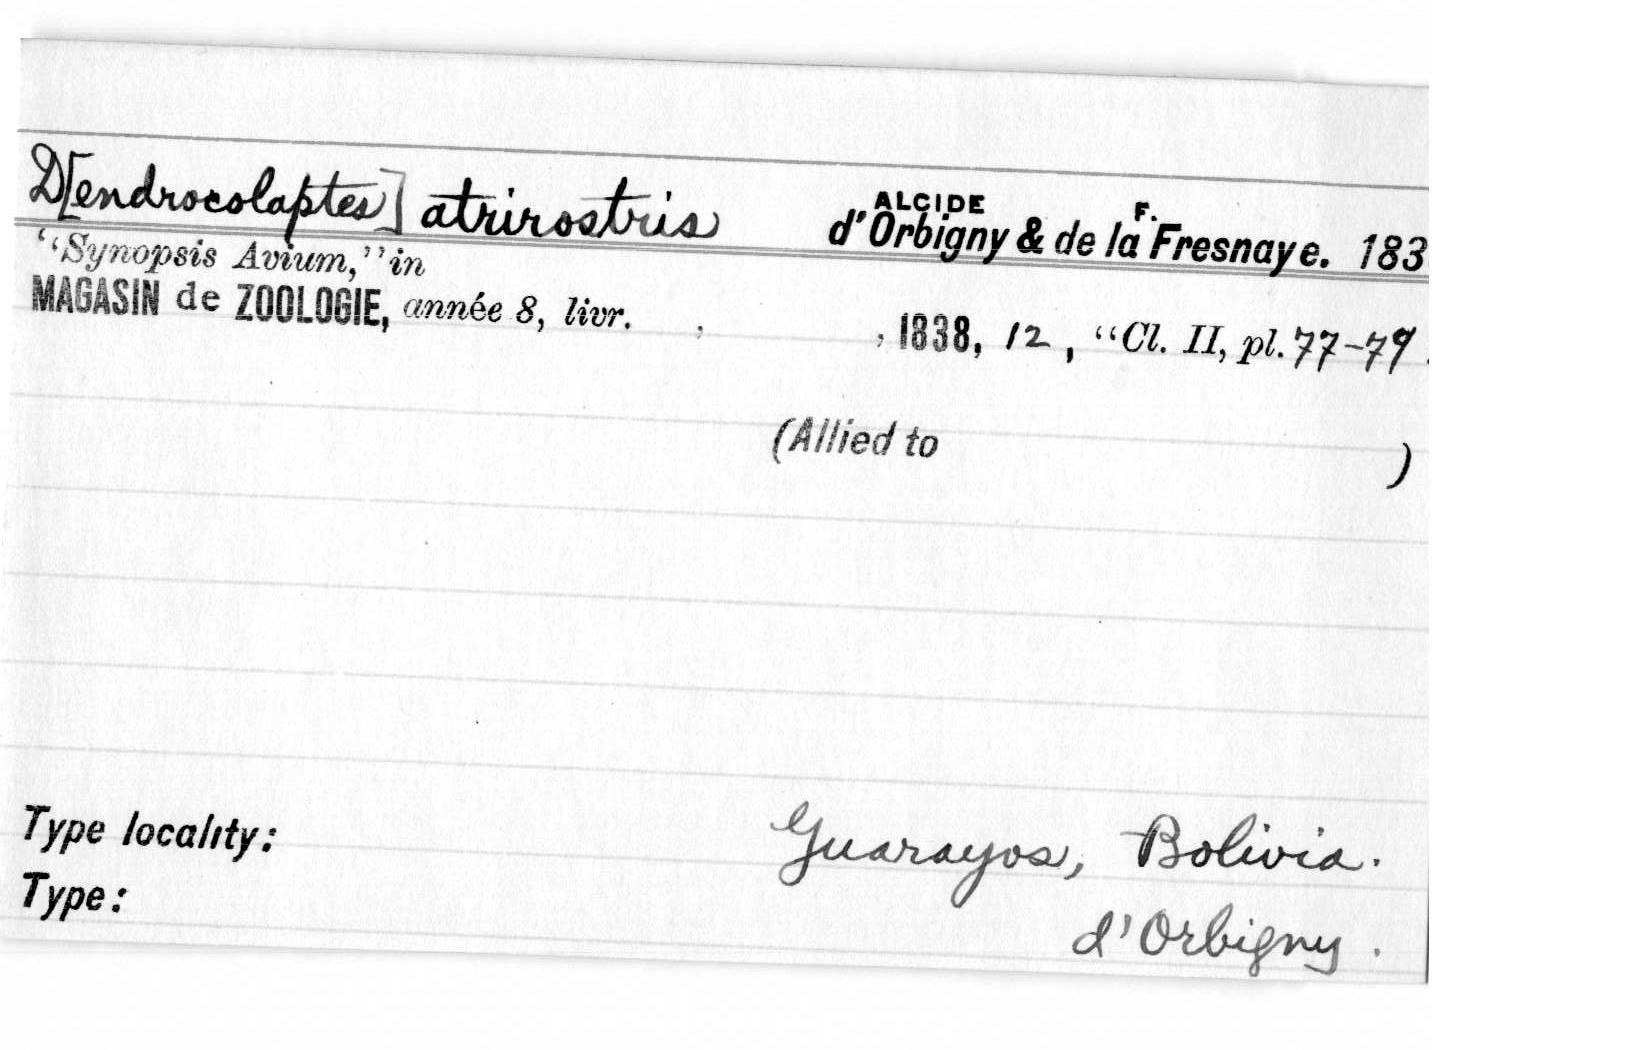 D[endrocolaptes] atrirostris ALCIDE d'Orbigny & de la F. Fresnaye. 183
“Synopsis Avium,” in
MAGASIN de ZOOLOGIE, année 8, livr. , , 1838, 12, “Cl. II, pl. 77-79.
(Allied to )
Type locality: Guarayos, Bolivia.
Type: d'Orbigny.